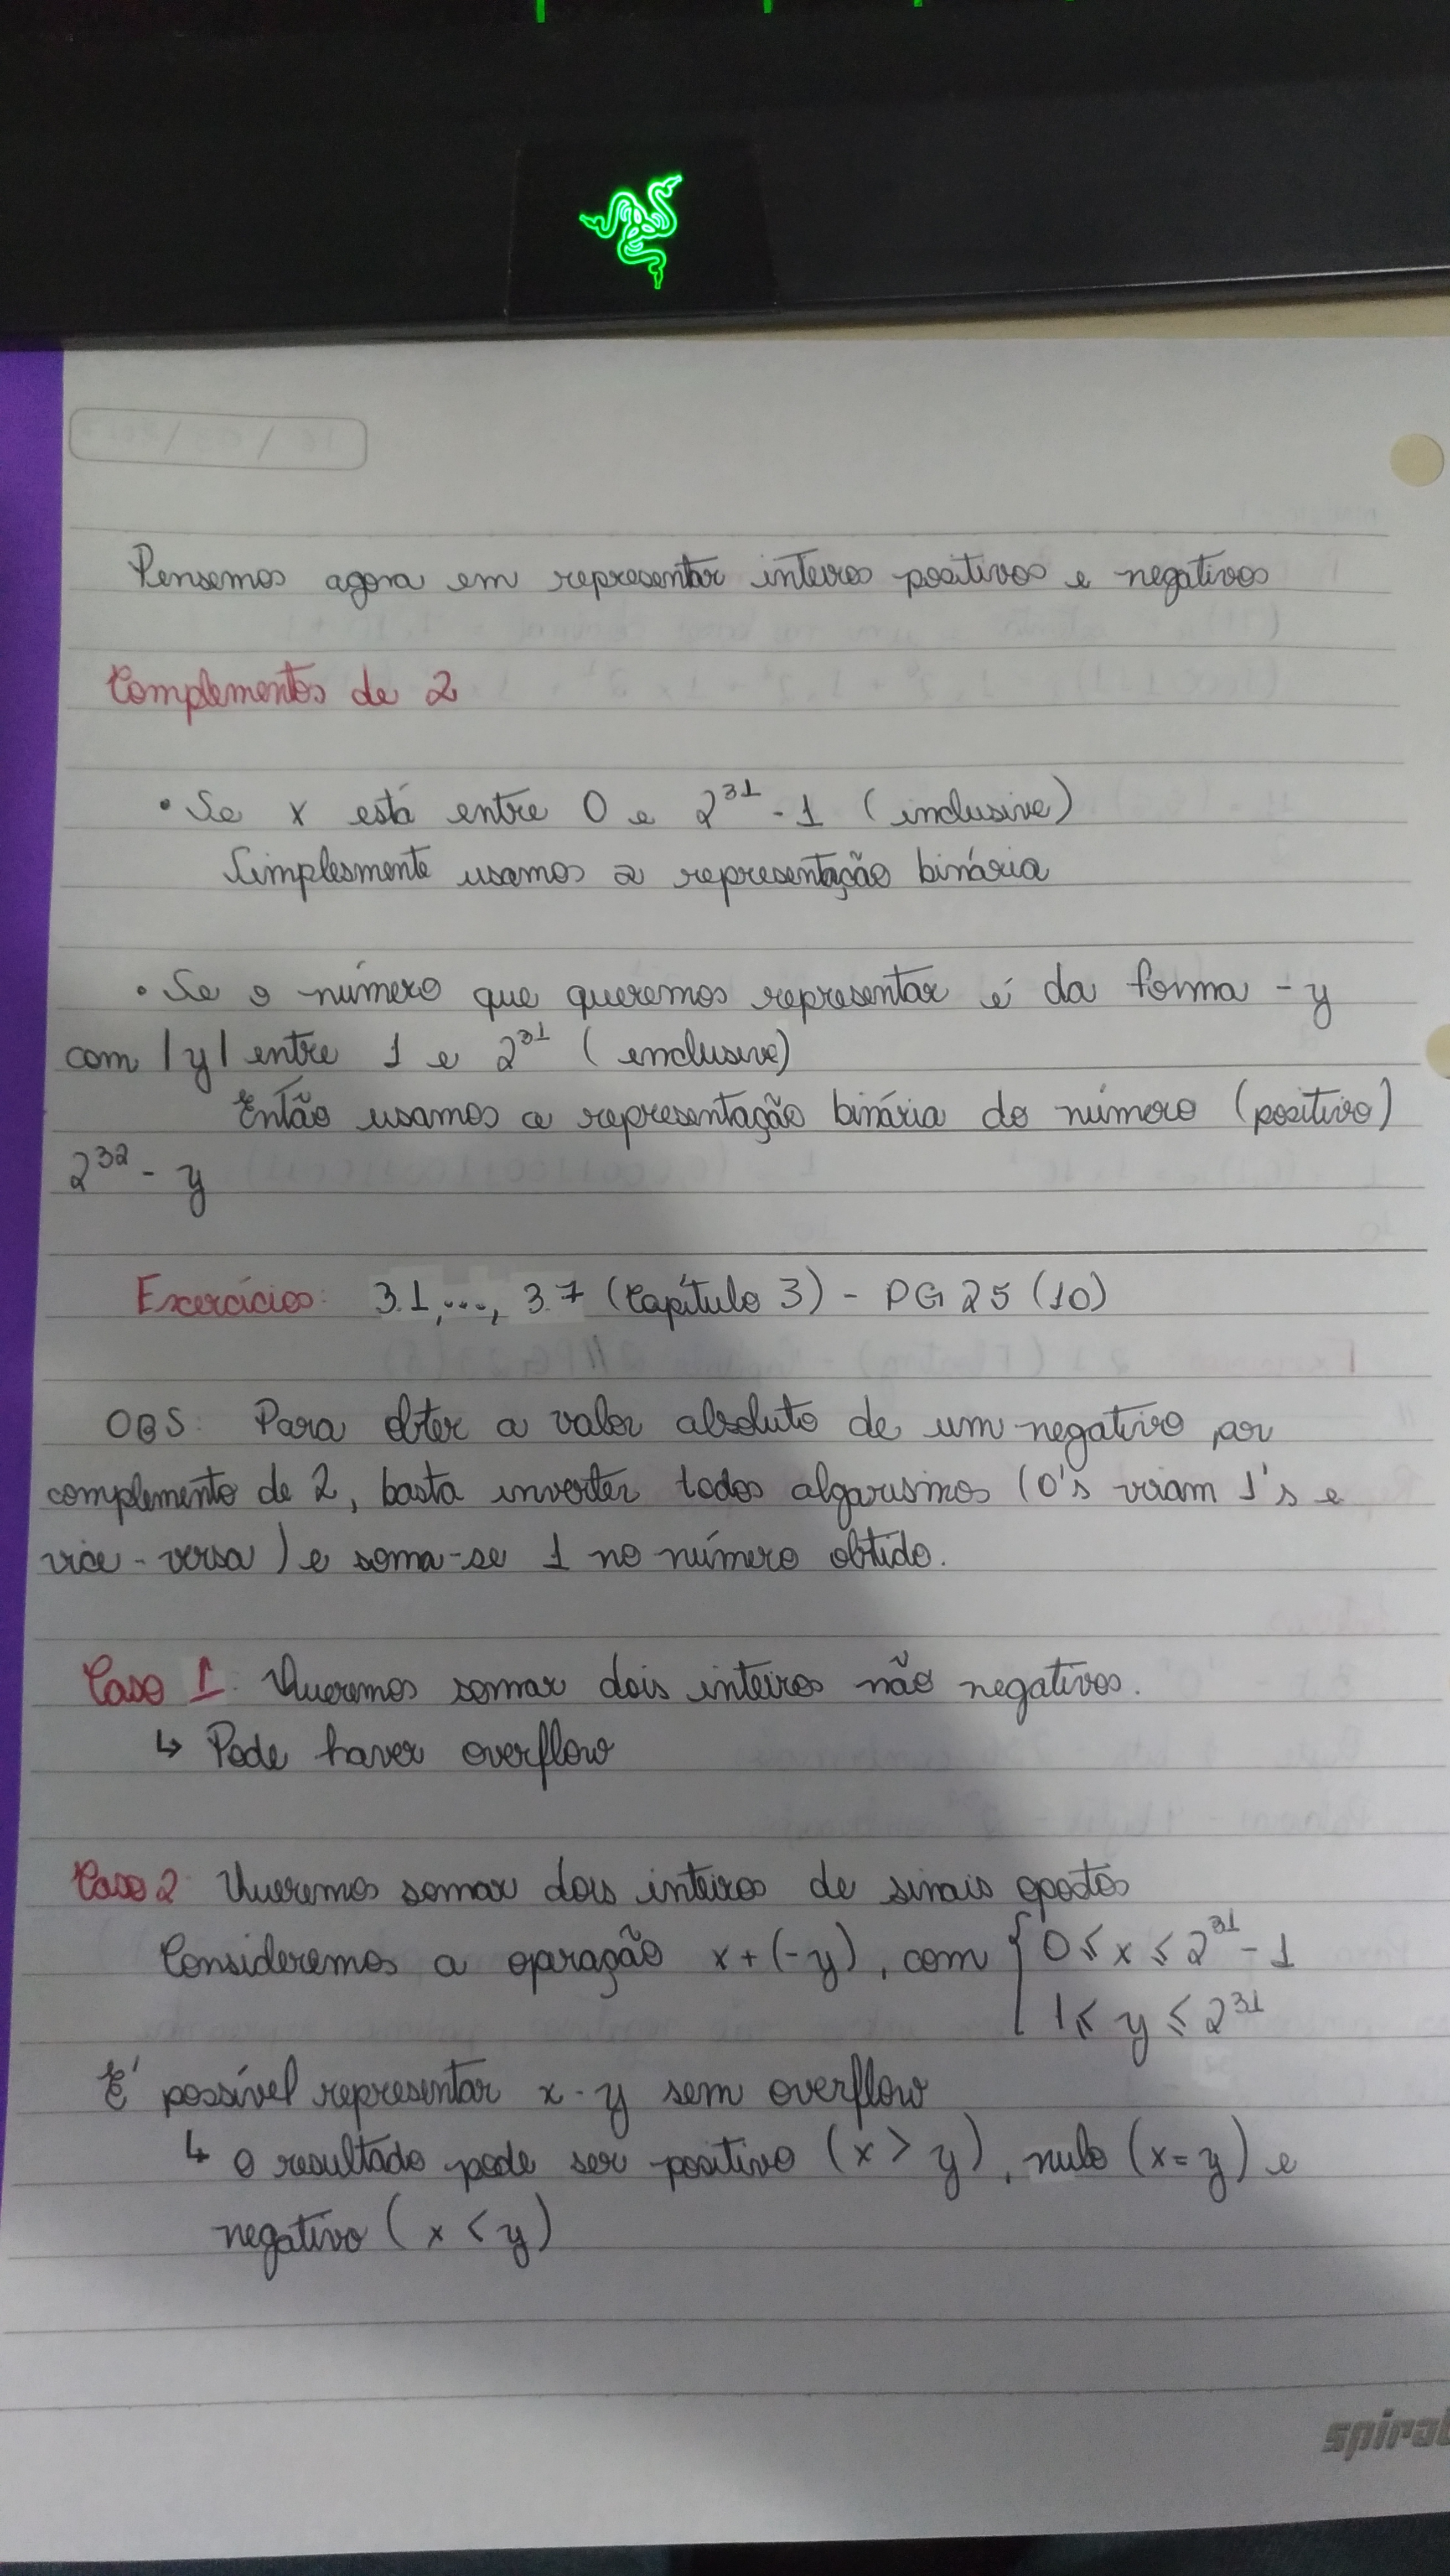 Pensemos agora em representar inteiros positivos e negativos
Complementos de 2
• Se x está entre 0 e 2³¹ - 1 (inclusive)
Simplesmente usamos a representação binária
• Se o número que queremos representar é da forma - y
com |y| entre 1 e 2³¹ (inclusive)
Então usamos a representação binária do número (positivo)
2³² - y
Exercícios: 3.1,..., 3.7 (Capítulo 3) - PG 25 (10)
OBS: Para obter a valor absoluto de um negativo por
complemento de 2, basta inverter todos algarismos (0's viram 1's e
vice-versa) e soma-se 1 no número obtido.
Caso 1: Queremos somar dois inteiros não negativos.
↳ Pode haver overflow
Caso 2: Queremos somar dois inteiros de sinais opostos
Consideremos a operação x + (-y), com { 0 ⩽ x ⩽ 2³¹ - 1
1 ⩽ y ⩽ 2³¹
É possível representar x - y sem overflow
↳ o resultado pode ser positivo (x > y), nulo (x = y) e
negativo (x < y)
spiral